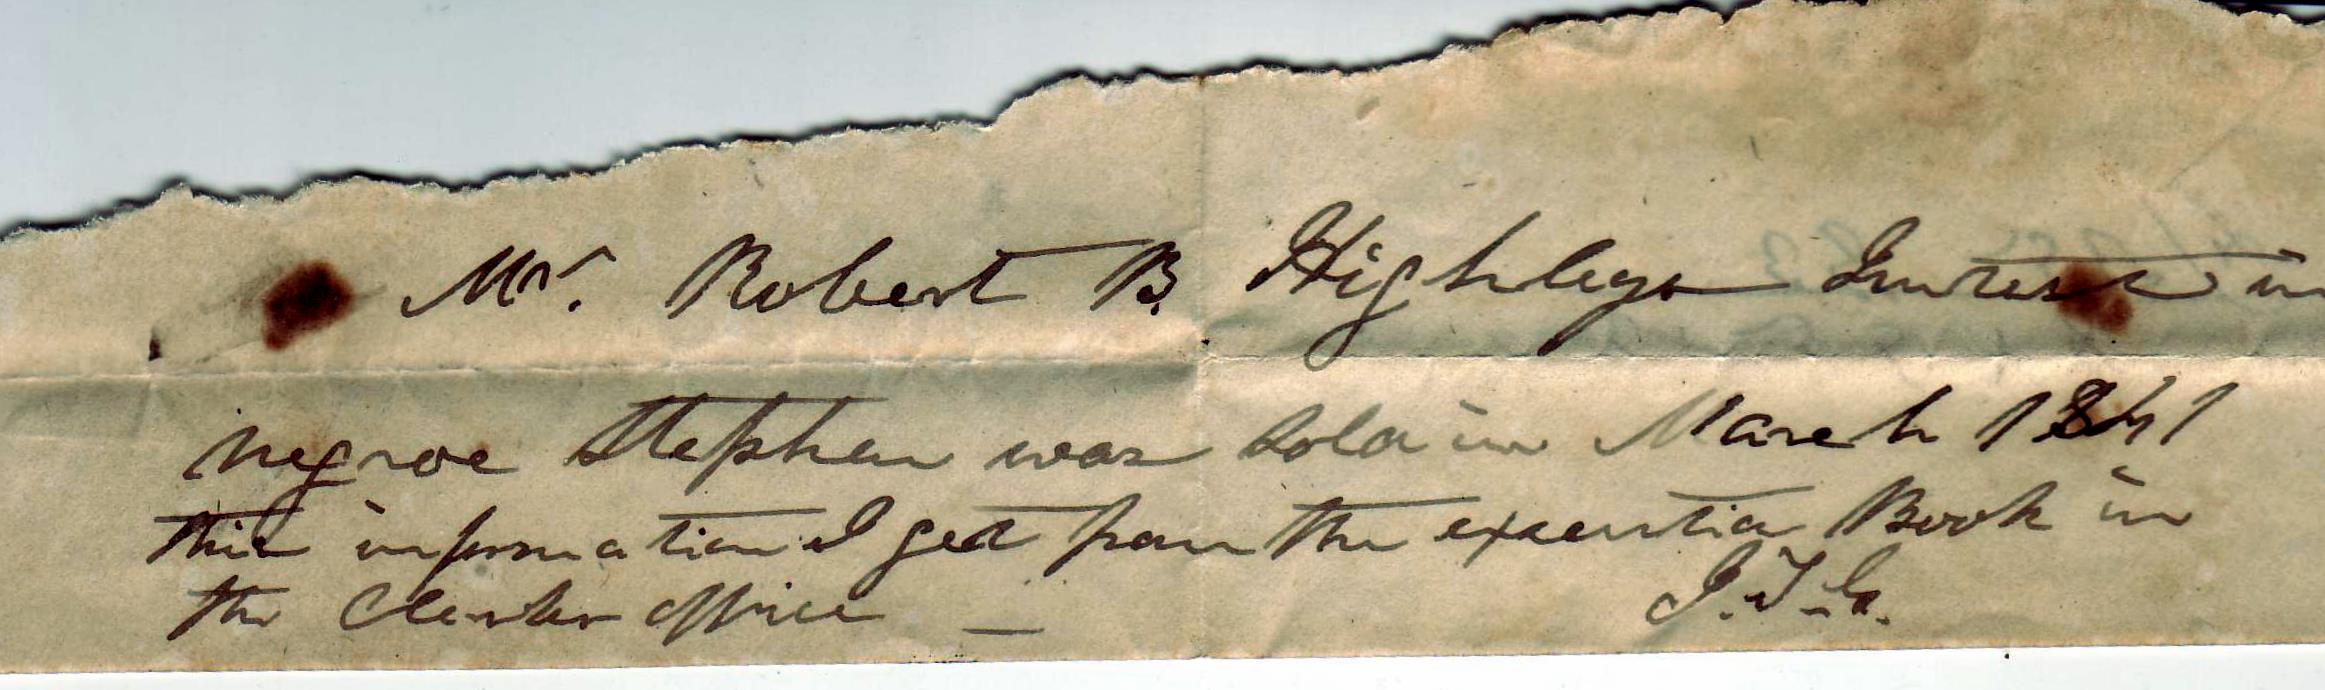 Mr. Robert B. Highleys Intrest in
negroe Stephen was sold in March 1841
this information I get from the execution Book in
the Clerks office —
J. T. G.